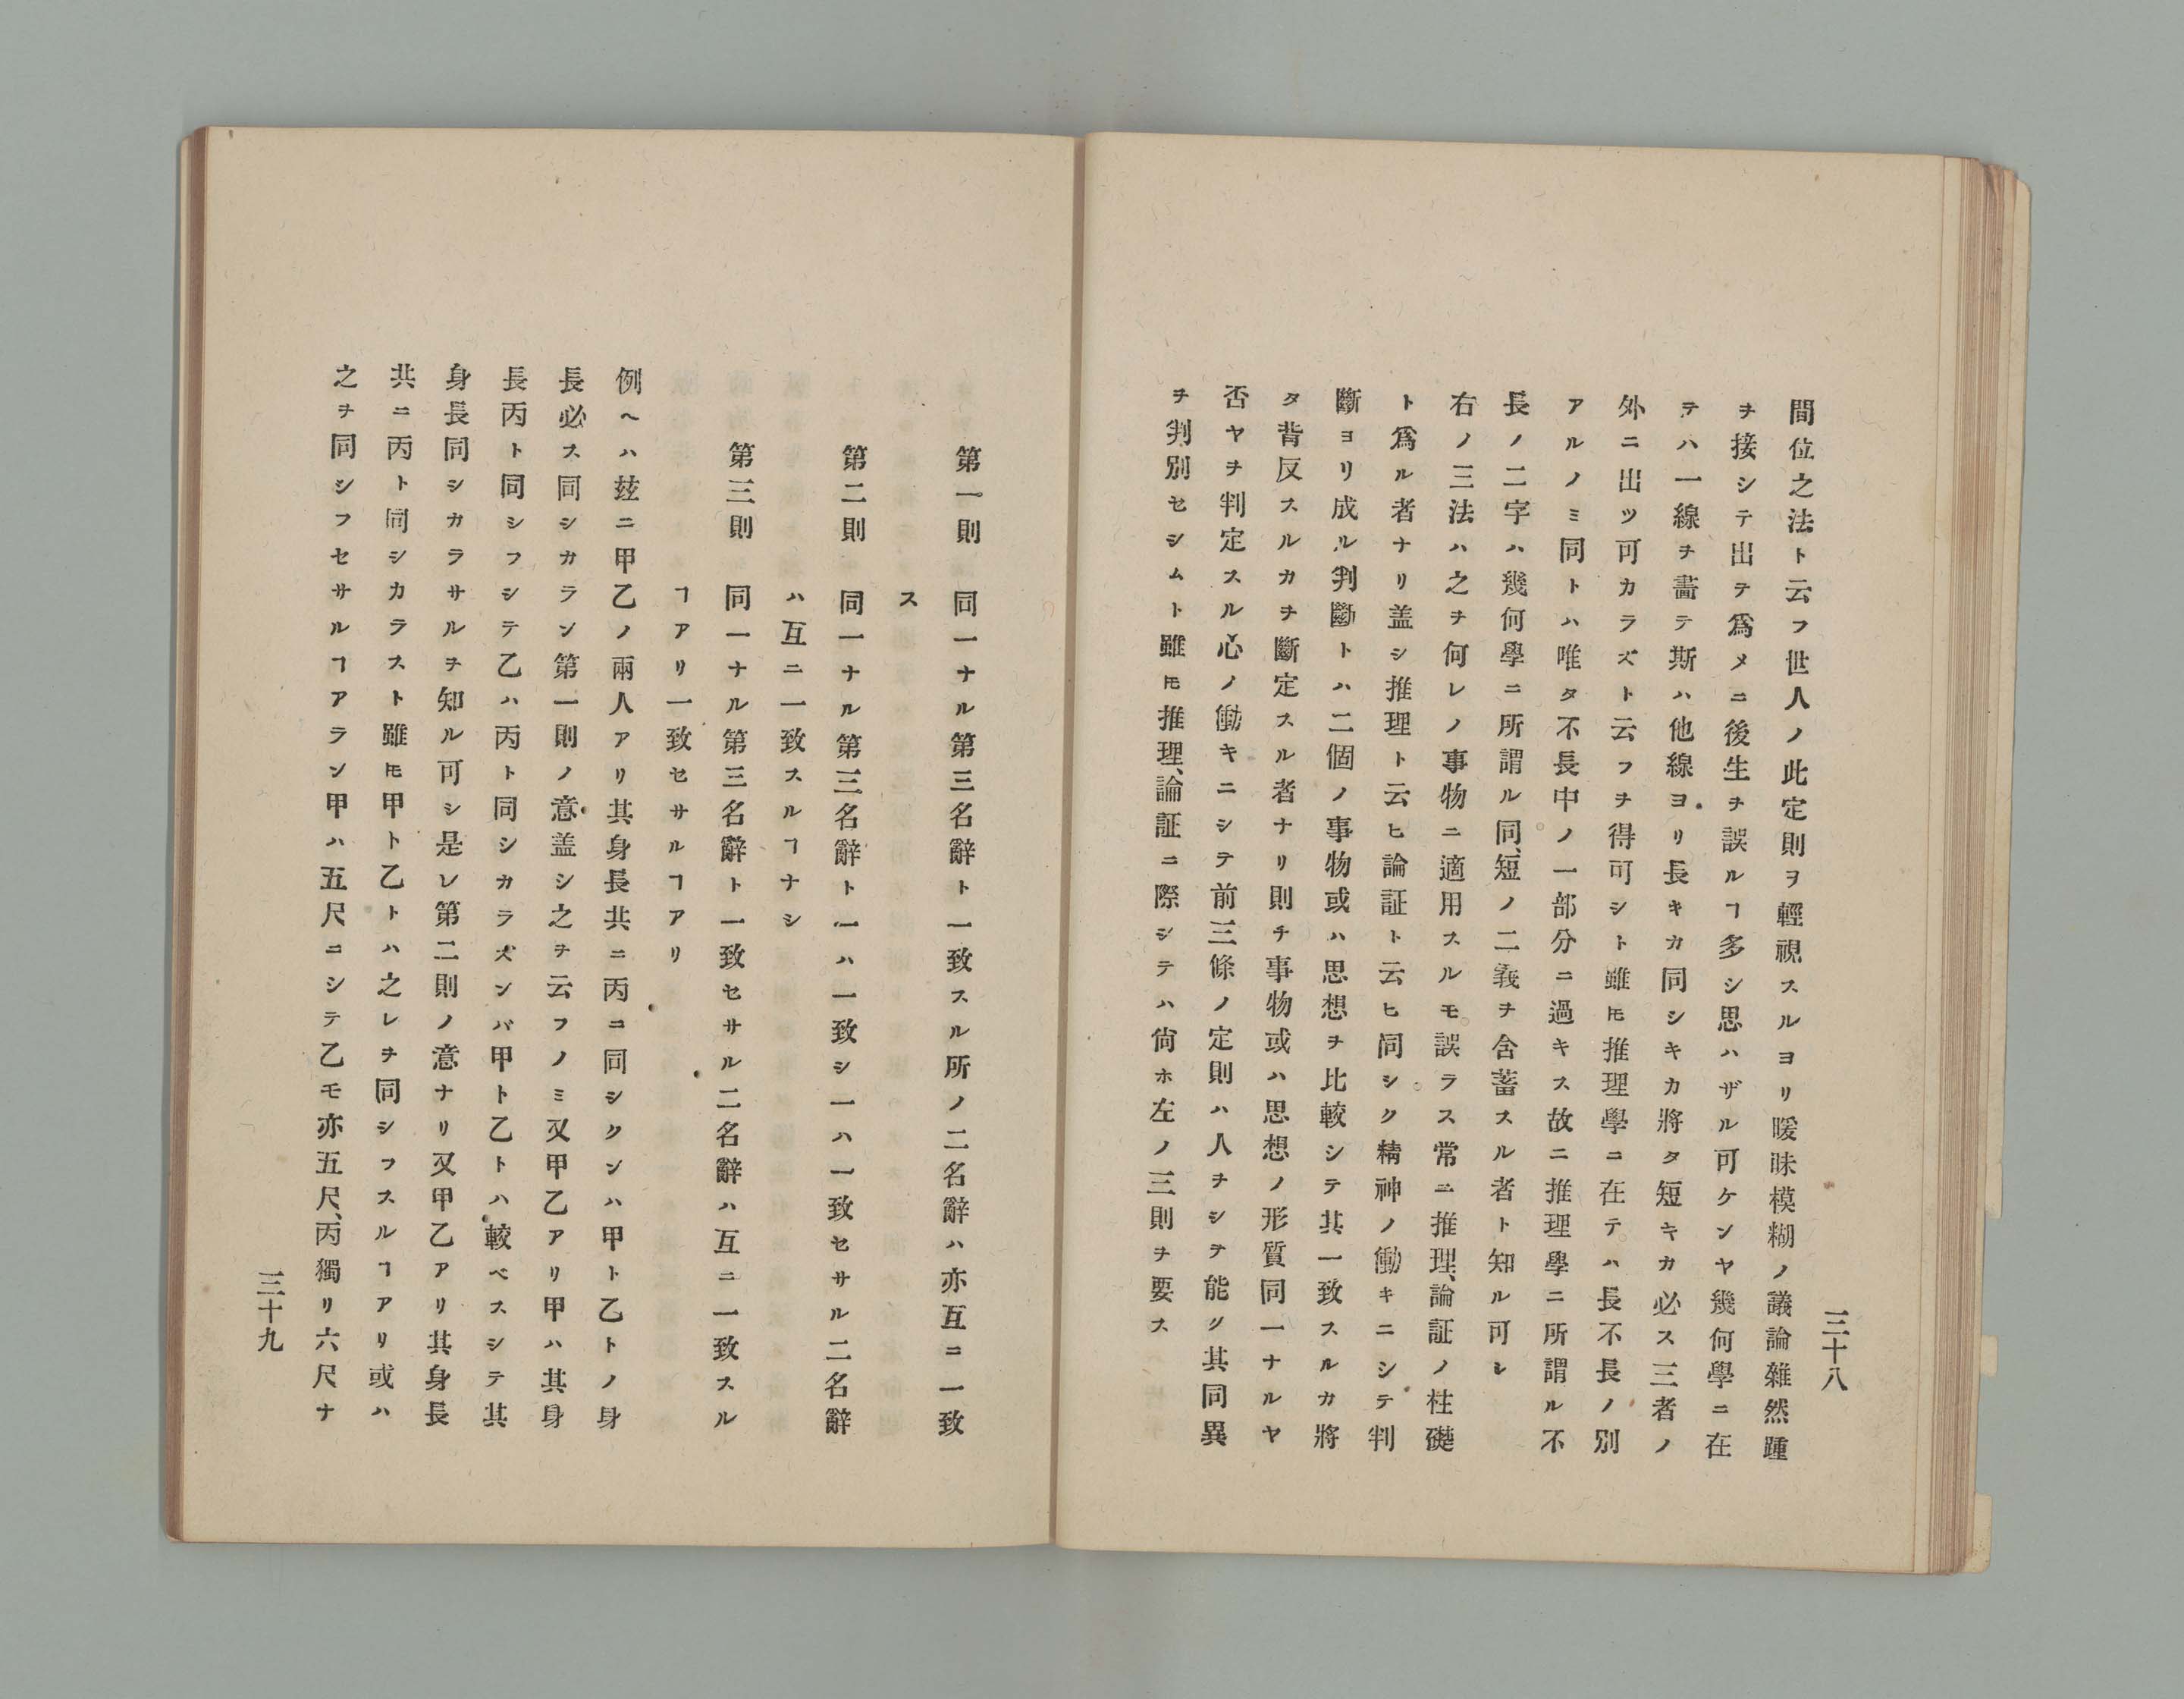 三十八
間位之法ト云フ世人ノ此定則ヲ輕視スルヨリ曖昧模糊ノ議論雜然踵
ヲ接シテ出テ爲メニ後生ヲ誤ルヿ多シ思ハザル可ケンヤ幾何學ニ在
テハ一線ヲ畵テ斯ハ他線ヨリ長キカ同シキカ將タ短キカ必ス三者ノ
外ニ出ツ可カラズト云フヲ得可シト雖𪜈推理學ニ在テハ長不長ノ別
アルノミ同トハ唯タ不長中ノ一部分ニ過キス故ニ推理學ニ所謂ル不
長ノ二字ハ幾何學ニ所謂ル同、短ノ二義ヲ含蓄スル者ト知ル可シ
右ノ三法ハ之ヲ何レノ事物ニ適用スルモ誤ラス常ニ推理、論証ノ柱礎
ト爲ル者ナリ盖シ推理ト云ヒ論証ト云ヒ同シク精神ノ働キニシテ判
斷ヨリ成ル判斷トハ二個ノ事物或ハ思想ヲ比較シテ其一致スルカ將
タ背反スルカヲ斷定スル者ナリ則チ事物或ハ思想ノ形質同一ナルヤ
否ヤヲ判定スル心ノ働キニシテ前三條ノ定則ハ人ヲシテ能ク其同異
ヲ判別セシムト雖𪜈推理、論証ニ際シテハ尙ホ左ノ三則ヲ要ス
第一則　同一ナル第三名辭ト一致スル所ノ二名辭ハ亦互ニ一致
ス
第二則　同一ナル第三名辭ト一ハ一致シ一ハ一致セサル二名辭
ハ互ニ一致スルヿナシ
第三則　同一ナル第三名辭ト一致セサル二名辭ハ互ニ一致スル
ヿアリ一致セサルヿアリ
例ヘハ玆ニ甲乙ノ兩人アリ其身長共ニ丙ニ同シクンハ甲ト乙トノ身
長必ス同シカラン第一則ノ意盖シ之ヲ云フノミ又甲乙アリ甲ハ其身
長丙ト同シフシテ乙ハ丙ト同シカラズンバ甲ト乙トハ較ベスシテ其
身長同シカラサルヲ知ル可シ是レ第二則ノ意ナリ又甲乙アリ其身長
共ニ丙ト同シカラスト雖𪜈甲ト乙トハ之レヲ同シフスルヿアリ或ハ
之ヲ同シフセサルヿアラン甲ハ五尺ニシテ乙モ亦五尺、丙獨リ六尺ナ
三十九